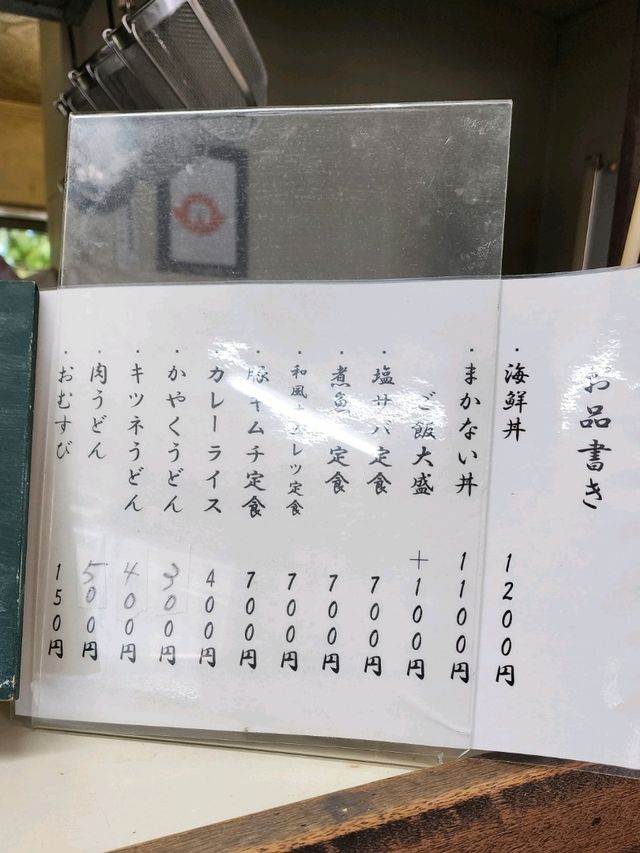 お品書き
・海鮮丼 1200円
・まかない丼 1100円
ご飯大盛 +100円
・塩サバ定食 700円
・煮魚定食 700円
・和風オムレツ定食 700円
・豚キムチ定食 700円
・カレーライス 400円
・かやくうどん 300円
・キツネうどん 400円
・肉うどん 500円
・おむすび 150円